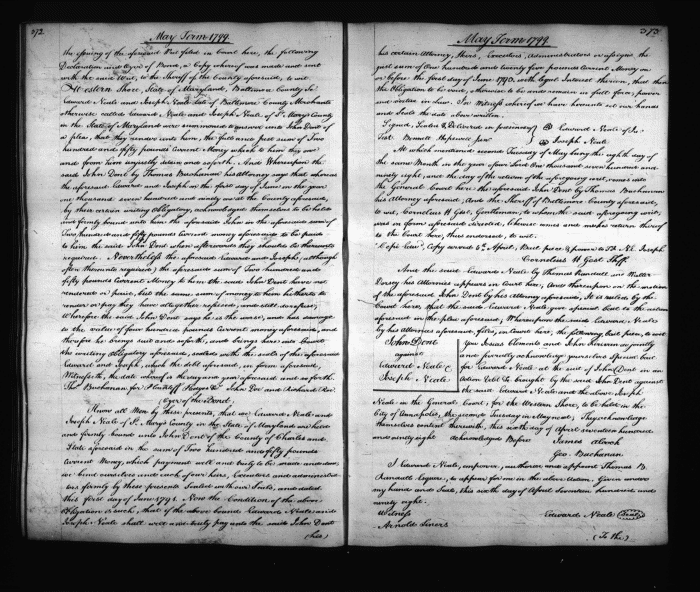 372
May Term 1799
the issuing of the aforesaid Writ filed in Court here, the following
Declaration and Oyer of Bond, a Copy whereof was made and sent
with the said Writ, to the Sheriff of the County aforesaid, to wit.
Western Shore, State of Maryland, Baltimore County Sc.
Edward Neale and Joseph Neale late of Baltimore County Merchants
otherwise called Edward Neale and Joseph Neale of St. Mary's County
in the State of Maryland were summoned to answer unto John Dent of
a plea, that they render unto him, the full and just sum of Two
hundred and fifty pounds Current Money which to him they owe
and from him unjustly detain and soforth. And Whereupon the
said John Dent by Thomas Buchanan his attorney says that whereas
the aforesaid Edward and Joseph on the first day of June in the year
one thousand seven hundred and ninety one at the County aforesaid,
by their certain writing obligatory, acknowledged themselves to be held
and firmly bound unto him the aforesaid John in the aforesaid sum of
Two hundred and fifty pounds Current money aforesaid to be paid
to him the said John Dent when afterwards they should be thereunto
required. Nevertheless the aforesaid Edward and Joseph, although
often thereunto required, the aforesaid sum of Two hundred and
fifty pounds Current Money to him the said John Dent have not
rendered or paid, but the same sum of money to him hitherto to
render or pay they have altogether refused, and still do refuse;
Wherefore the said John Dent says he is the worse, and has damage
to the value of four hundred pounds Current money aforesaid, and
therefore he brings suit and soforth, and brings here into Court
the writing obligatory aforesaid, sealed with the seals of the aforesaid
Edward and Joseph, which the debt aforesaid, in form aforesaid,
Witnesseth, the date whereof is the day and year aforesaid and soforth.
Tho: Buchanan for Plaintiff Pledges &c. John Doe and Richard Roe.
Oyer of the Bond.
Know all Men by these presents, that we Edward Neale and
Joseph Neale of St. Mary's County in the State of Maryland are held
and firmly bound unto John Dent of the County of Charles and
State aforesaid in the sum of Two hundred and fifty pounds
Current Money, which payment well and truly to be made and done,
we bind ourselves and each of our heirs, Executors and administra-
tors firmly by these presents Sealed with our Seals, and dated
this first day of June 1791. Now the Condition of the above
Obligation is such, that if the above bound Edward Neale and
Joseph Neale shall well and truly pay unto the said John Dent
(his)
373
May Term 1799
his certain Attorney, Heirs, Executors, Administrators or assigns the
just sum of One hundred and twenty five pounds Current Money on
or before the first day of June 1793, with legal Interest thereon, that then
the Obligation to be void, otherwise to be and remain in full force, power
and virtue in law. In Witness whereof we have hereunto set our hands
and Seals the date above written.
Signed, Sealed & Delivered in presence of
Edward Neale of J.
Joseph Neale
At which mentioned second Tuesday of May being the eighth day of
the same Month in the year of our Lord One thousand seven hundred and
ninety eight, and the day of the return of the aforegoing writ, comes into
the General Court here the aforesaid John Dent by Thomas Buchanan
his Attorney aforesaid, And the Sheriff of Baltimore County aforesaid,
to wit, Cornelius H Gist, Gentleman, to whom the said aforegoing writ,
was in form aforesaid directed, thereof comes and makes return thereof
to the Court here, thus endorsed, to wit.
Cornelius H Gist Shff.
And the said Edward Neale by Thomas Randall and Walter
Dorsey his Attornies appears in Court here, And thereupon on the motion
of the aforesaid John Dent by his attorney aforesaid, It is ruled by the
Court here that the said Edward Neale give special bail to the action
aforesaid in the plea aforesaid, Whereupon the said Edward Neale
by his attornies aforesaid, files, in Court here, the following bail piece, to wit
John Dent
against
Edward Neale &
Joseph Neale
You Josias Clements and John Kerwin do jointly
and severally acknowledge yourselves Special bail
for Edward Neale at the suit of John Dent in an
Action Debt &c. brought by the said John Dent against
the said Edward Neale and the above Joseph
Neale in the General Court, for the Western Shore, to be held in the
City of Annapolis, the second Tuesday in May next, They acknowledge
themselves content therewith, this sixth day of April seventeen hundred
and ninety eight acknowledged Before
James Alcock
Geo. Buchanan
I Edward Neale, empower, authorise and appoint Thomas B.
Randall Esquire, to appear for me in the above Action. Given under
my hand and Seal, this sixth day of April Seventeen hundred and
ninety eight.
Witness
Edward Neale (Seal)
Arnold Livers
(To the)